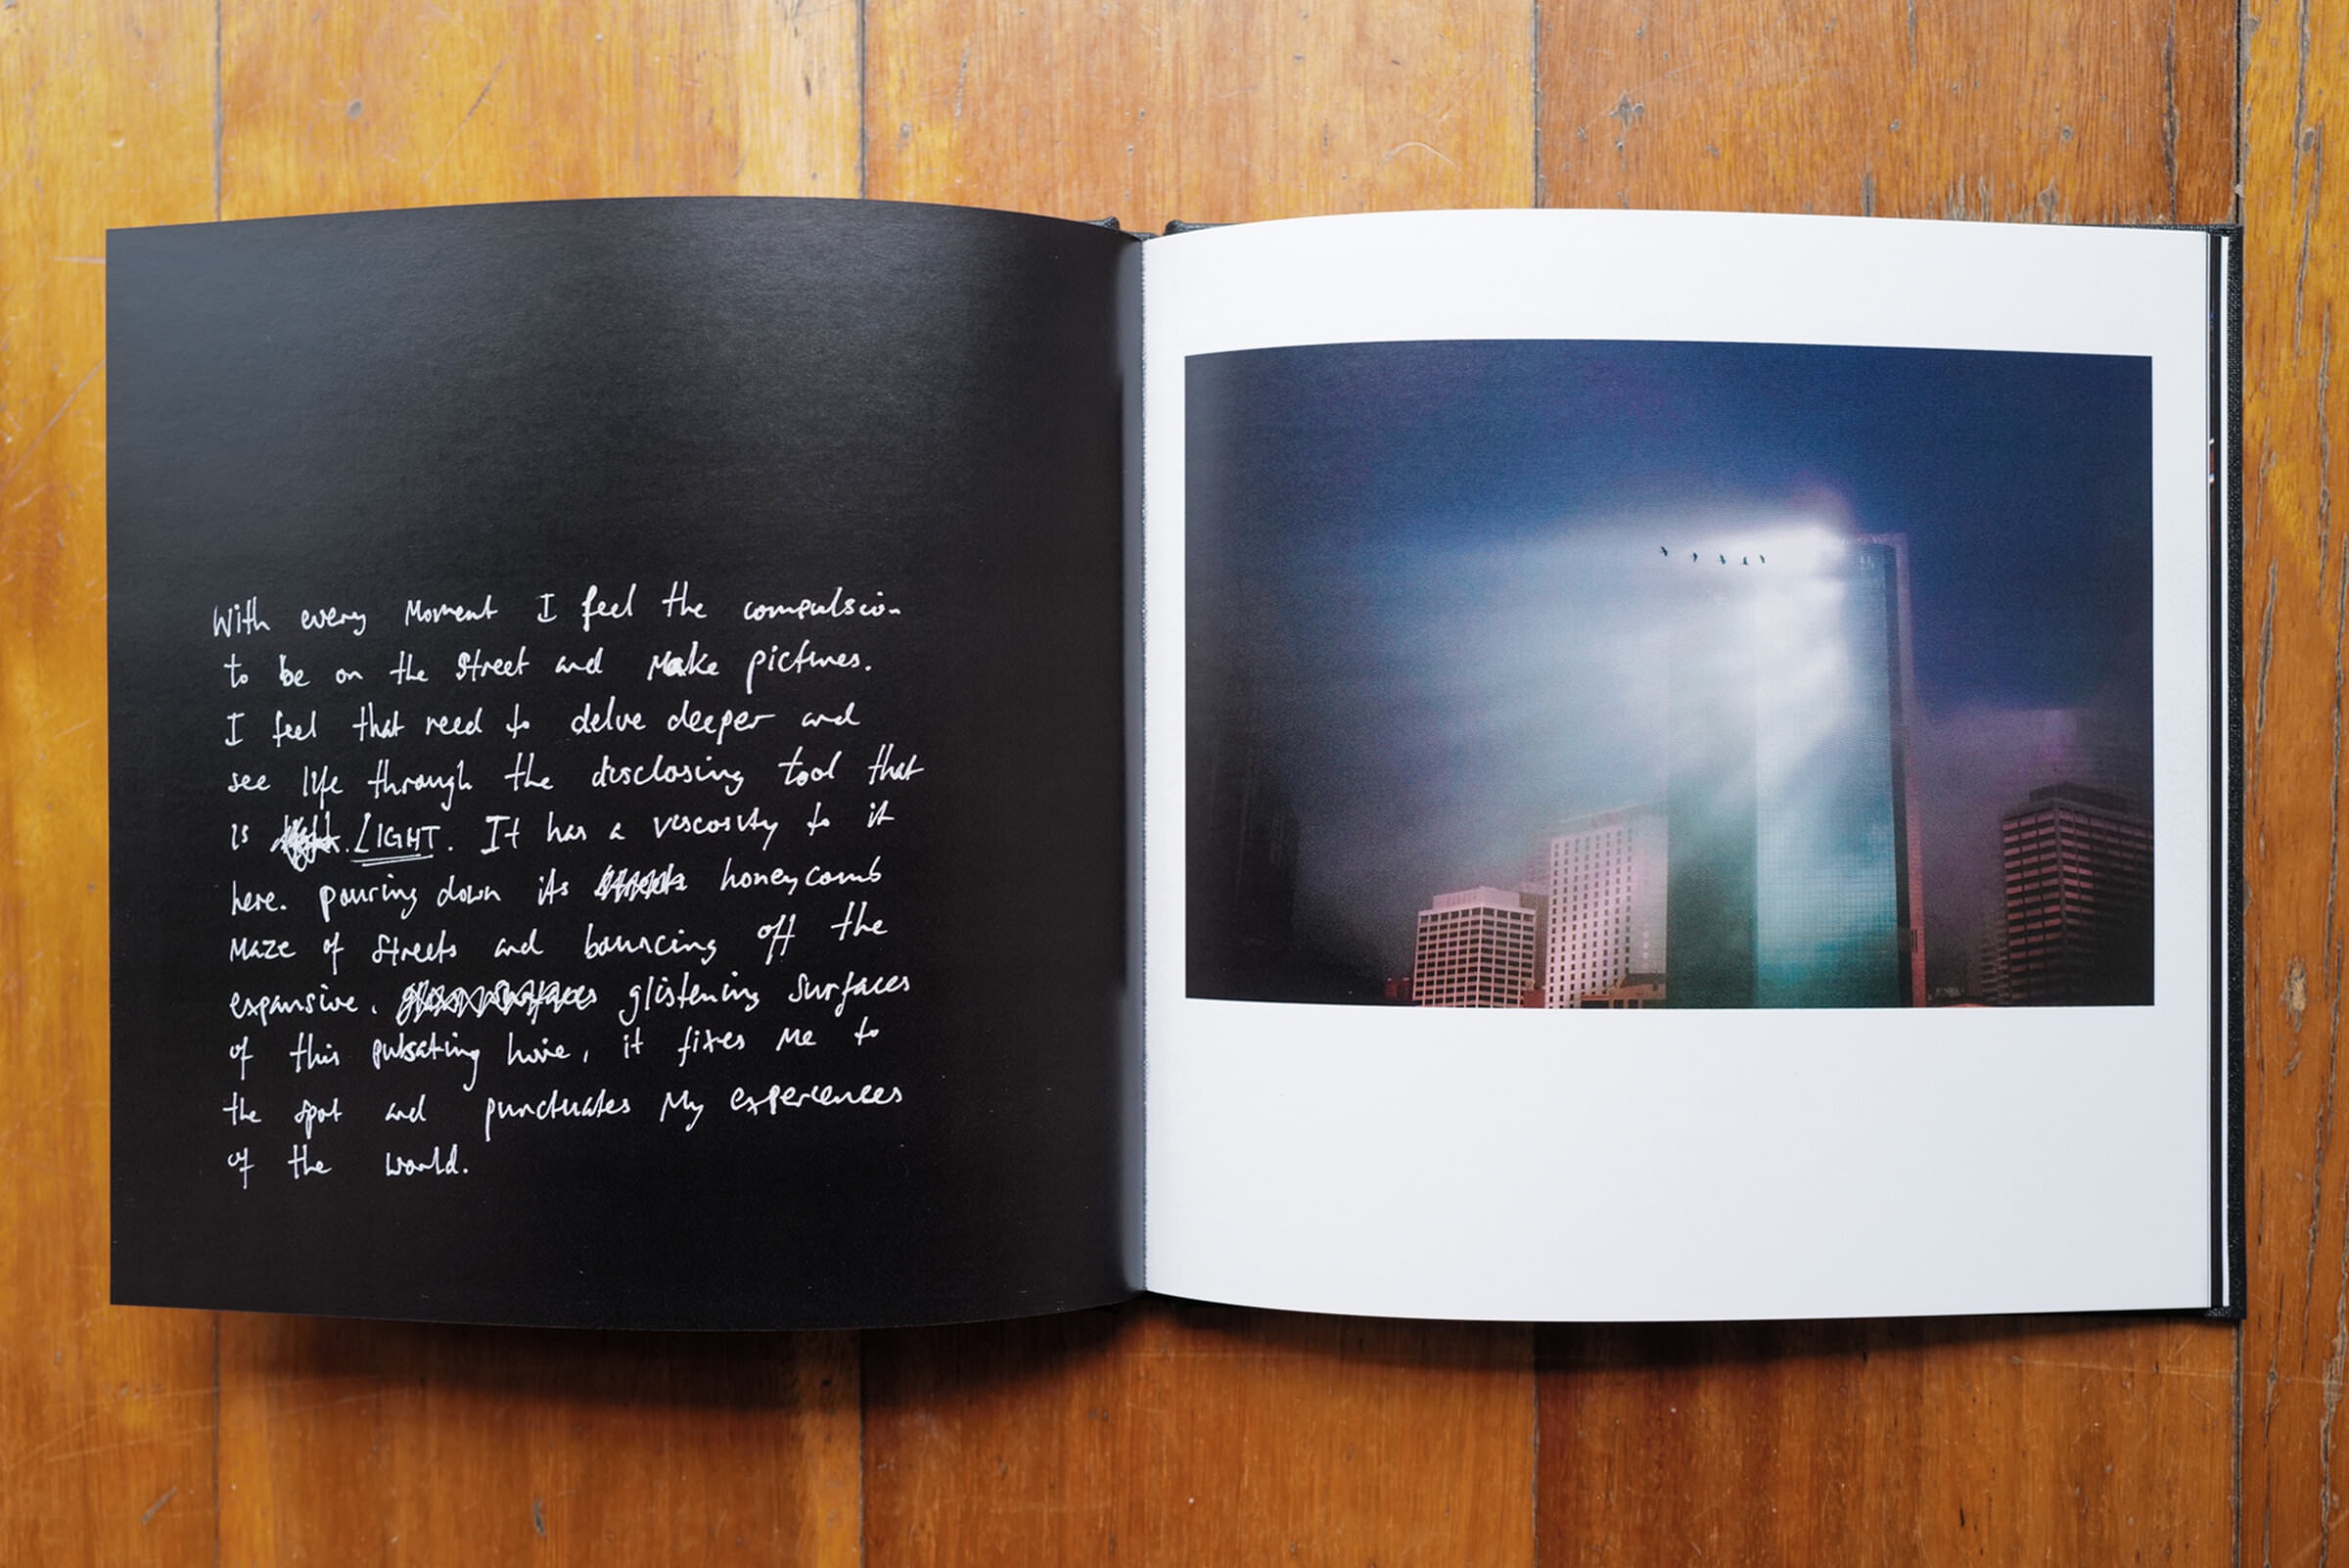 With every Moment I feel the compulsion
to be on the street and Make pictures.
I feel that need to delve deeper and
see life through the disclosing tool that
is LIGHT. It has a viscosity to it
here. pouring down its honeycomb
Maze of streets and bouncing off the
expansive, glistening surfaces
of this pulsating hive, it fixes Me to
the spot and punctuates My experiences
of the world.